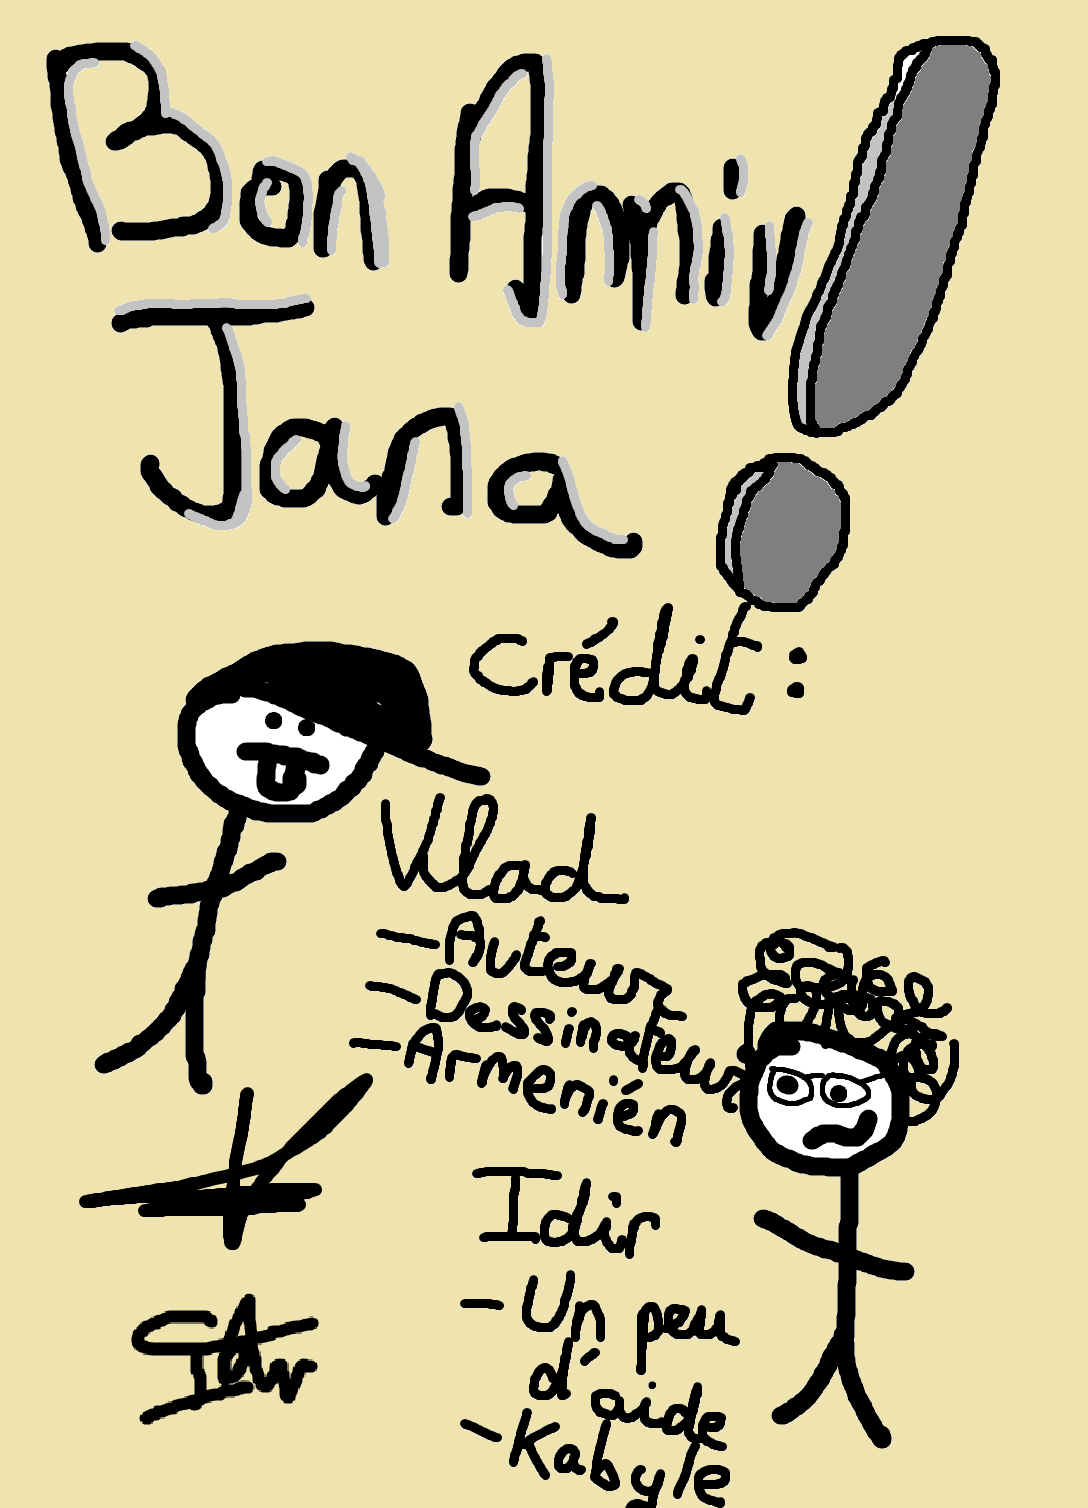 Bon Anniv!
Jana
Crédit :
Vlad
- Auteur
- Dessinateur
- Armenién
Idir
- Un peu
d'aide
- Kabyle